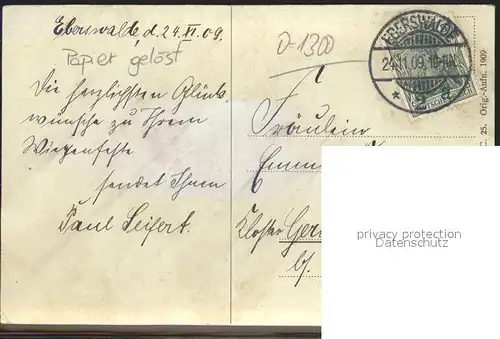 Eberswalde, d. 24. XI. 09.
Papier gelöst
D-1300
Die herzlichsten Glück-
wünsche zu Ihrem
Wiegenfeste
sendet Ihnen
Paul Seifert.
EBERSWALDE
24.11.09. 10-11V.
*
Fräulein
Emm
Kloster
C. 25. Orig.-Aufn. 1909
privacy protection
Datenschutz